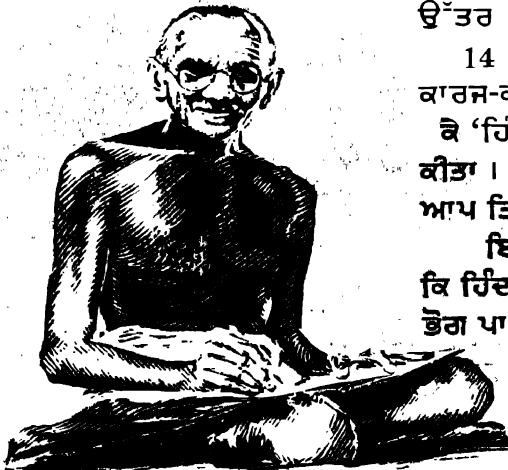 ਉੱਤਰ
14
ਕਾਰਜ-
ਕੈ ‘ਹਿੰ
ਕੀਤਾ ।
ਆਪ ਤਿ
ਇ
ਕਿ ਹਿੰਦ
ਭੋਗ ਪਾ